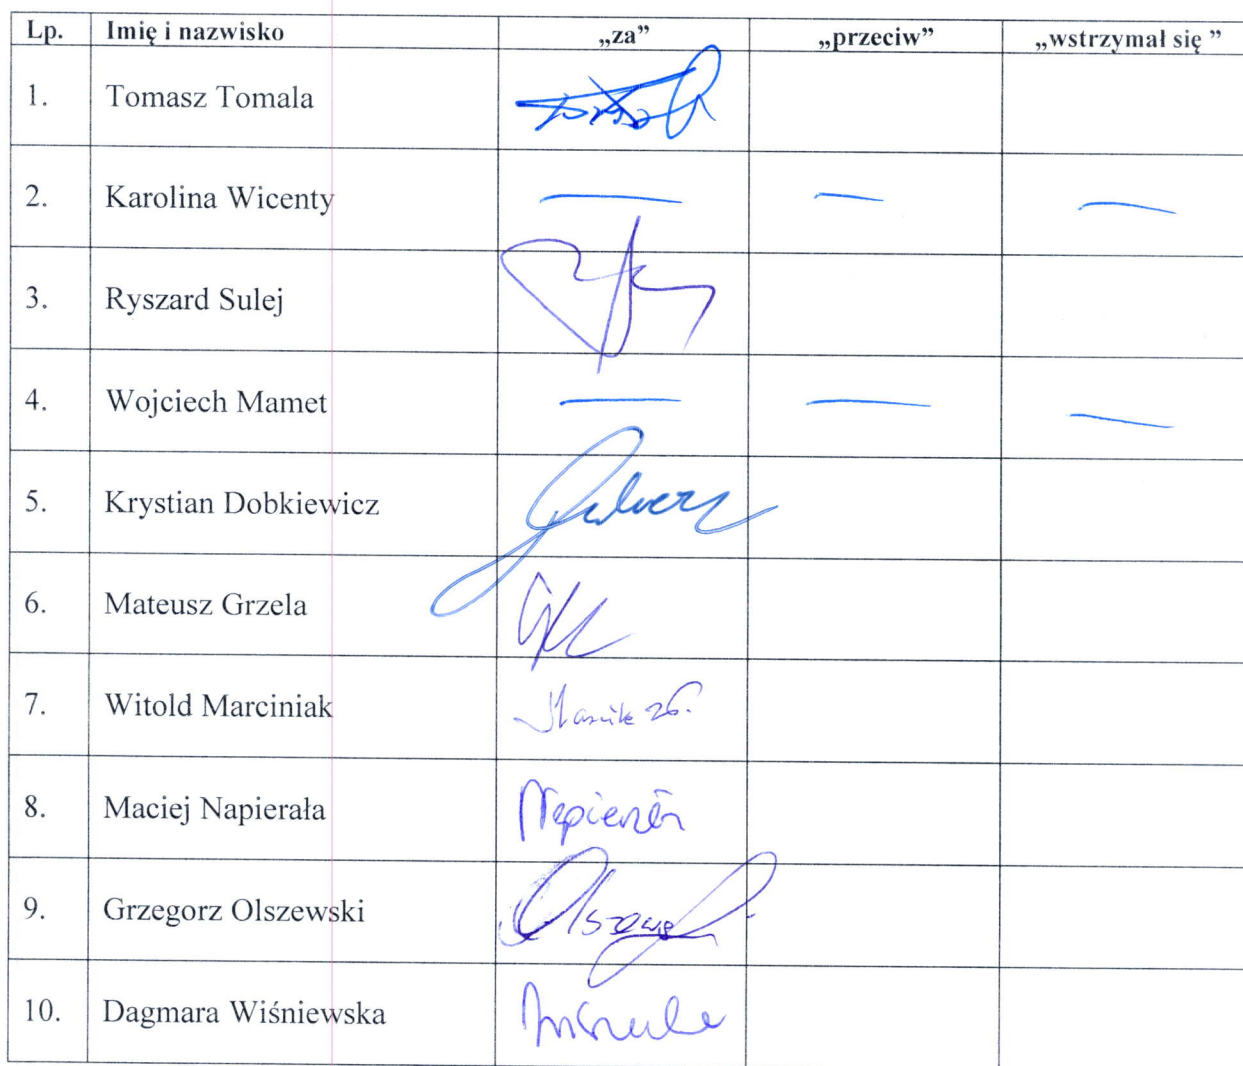 Lp. Imię i nazwisko „za” „przeciw” „wstrzymał się ”
1. Tomasz Tomala
2. Karolina Wicenty — — —
3. Ryszard Sulej
4. Wojciech Mamet — — —
5. Krystian Dobkiewicz
6. Mateusz Grzela
7. Witold Marciniak
8. Maciej Napierała
9. Grzegorz Olszewski
10. Dagmara Wiśniewska